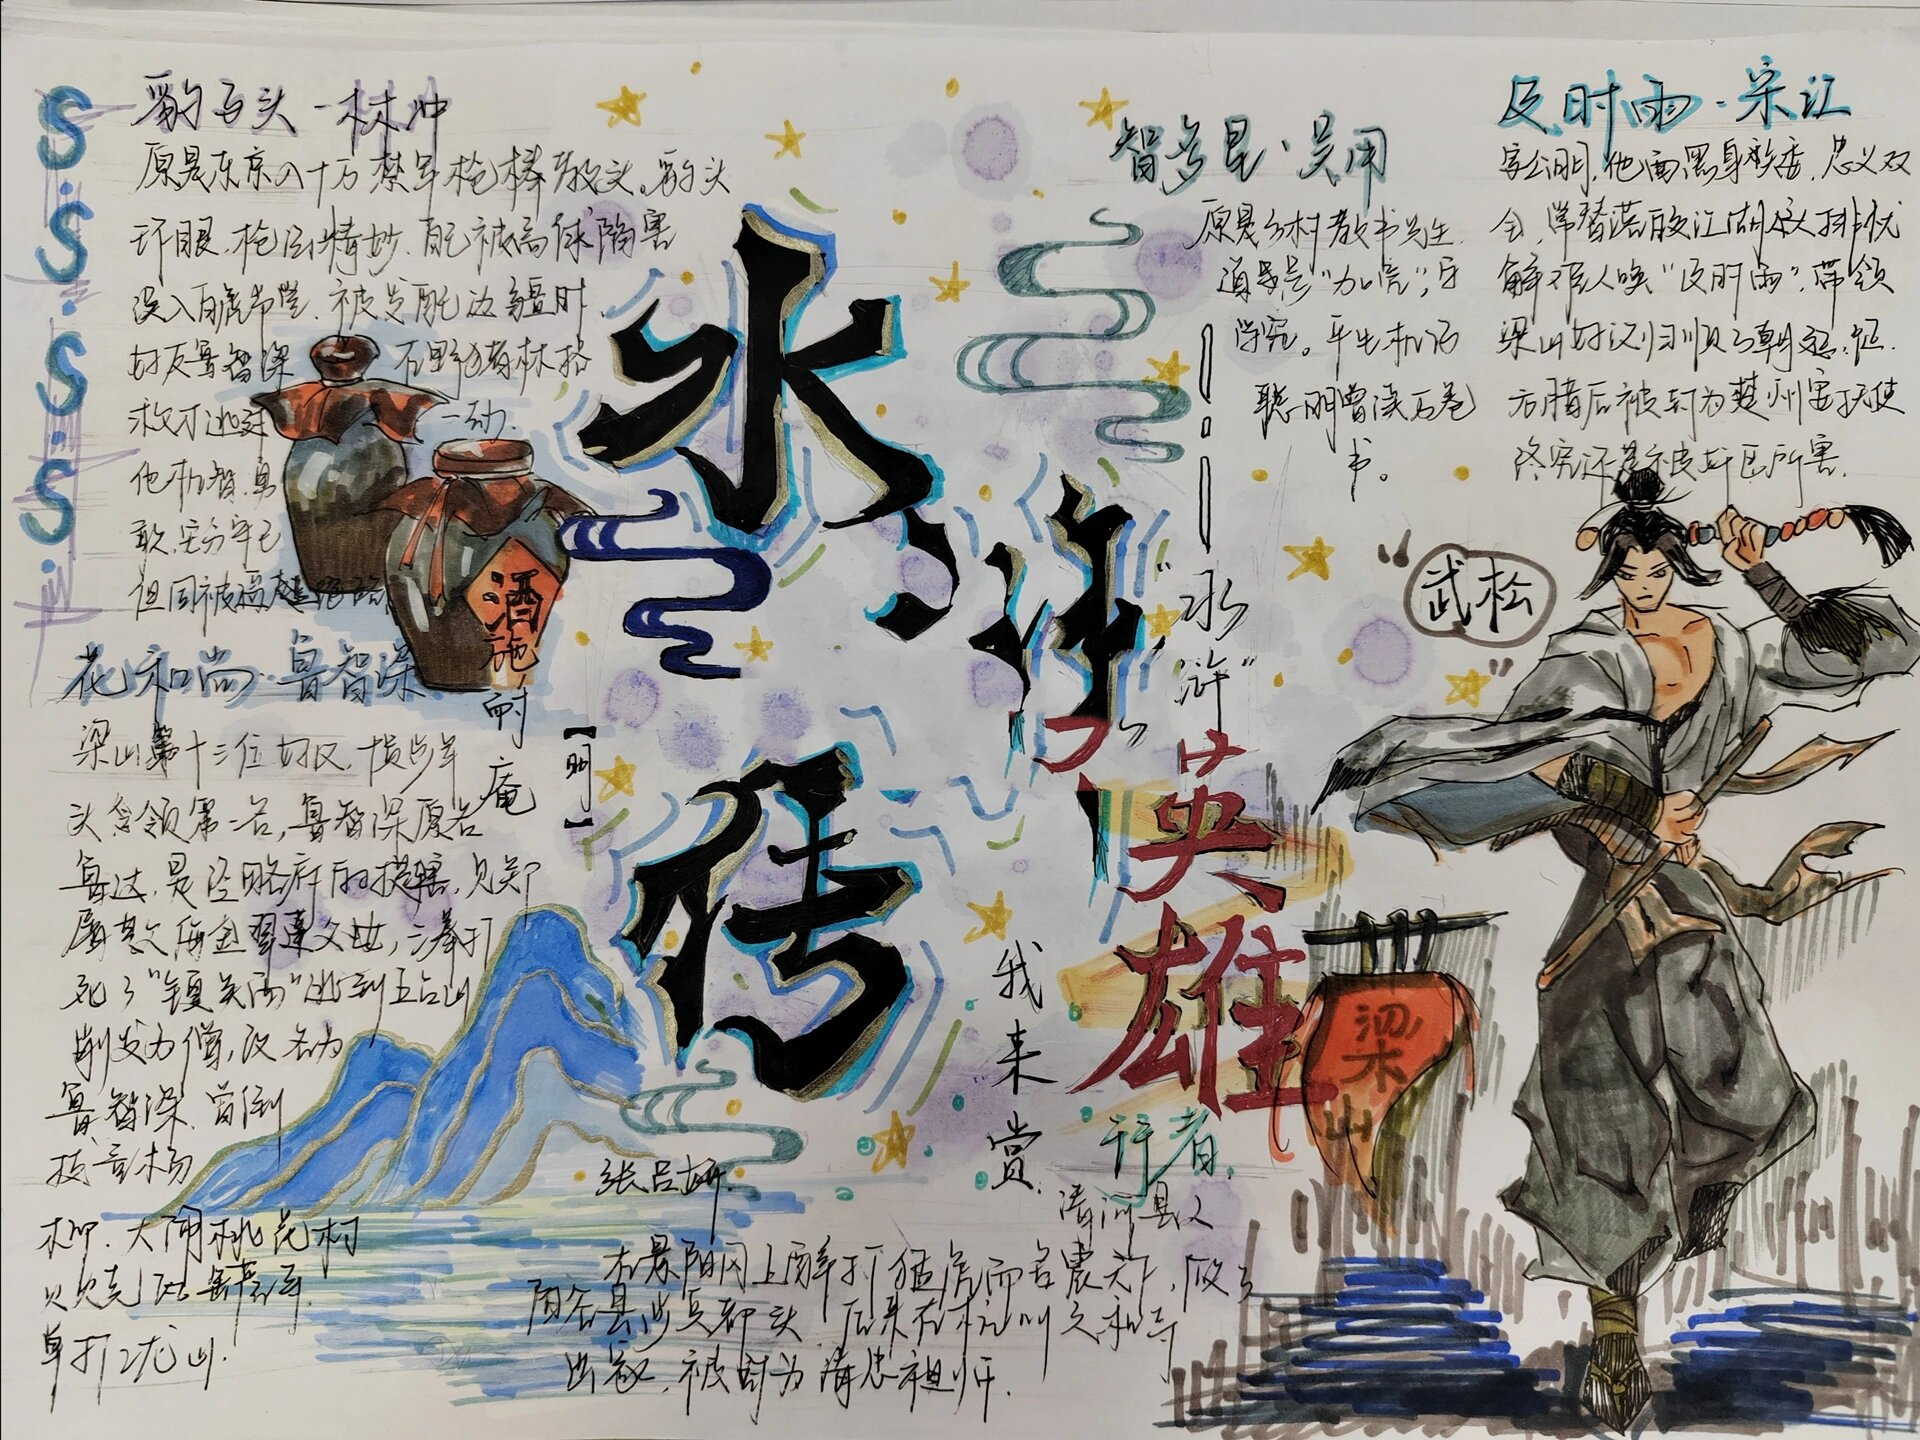 S.S.S.S.
豹子头·林冲
原是东京八十万禁军枪棒教头。豹头
环眼,枪法精妙,
被高俅陷害
误入白虎节堂,被发配边疆时
好友鲁智深
在野猪林搭
救才逃过
一劫.
他机智,勇
敢,安分守己
但因被逼
酒
花和尚·鲁智深
梁山第十三位好汉,
头领第二名,鲁智深原名
鲁达,是经略府的提辖,见郑
屠欺侮金翠莲父女,三拳打
死了“镇关西”逃到五台山
削发为僧,改名为
鲁智深.曾倒
拔
杨
柳.大闹桃花村
火烧瓦罐寺.
单打二龙山.
水浒传
施耐庵
【明】
智多星·吴用
原是乡村教书先生.
道号是“加亮”,字
学究。平生机巧
聪明曾读万卷
书。
及时雨·宋江
字公明,他面黑身矮,忠义双
全,常替
江湖
排忧
解难人唤“及时雨”,带领
梁山好汉归顺了朝廷,征
方腊后被封为楚州安抚使
终究还是被奸臣所害.
“武松”
——·——“水浒”英雄
我来赏.
梁山
张吕妍.
行者.
清河县人
在景阳冈上醉打猛虎而名震天下,做了
阳谷县步兵都头.后来在杭州六和寺
出家,被封为清忠祖师.